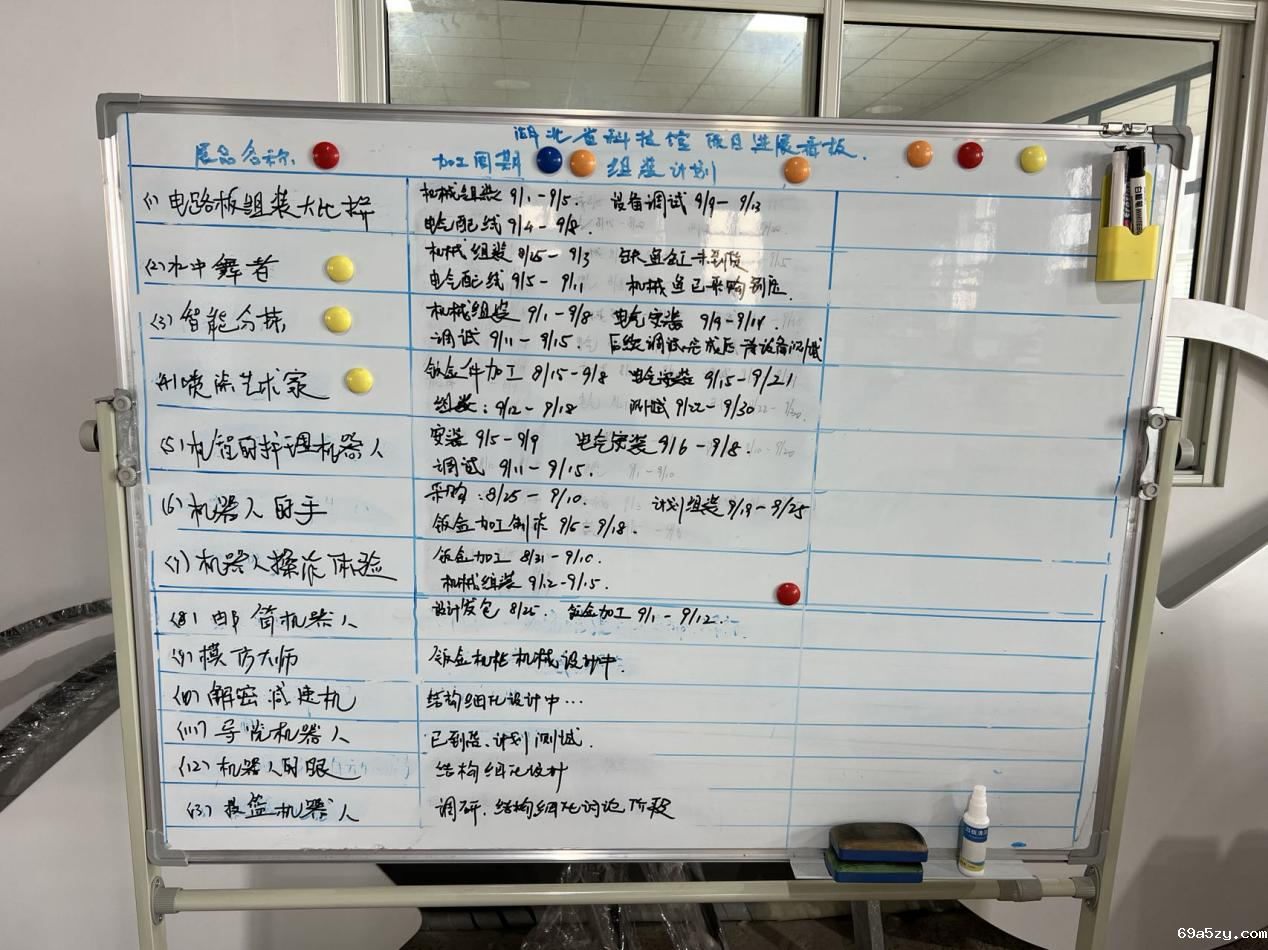 湖北省科技馆 项目进展看板.
展品名称. 加工周期 组装计划
(1) 电路板组装大比拼
机械组装 9/1-9/5. 设备调试 9/9-9/13
电气配线 9/4-9/8.
(2) 水中舞者
机械组装 8/25-9/3 缺鱼缸未到货
电气配线 9/5-9/11 机械鱼已采购到位.
(3) 智能分拣
机械组装 9/1-9/8 电气安装 9/9-9/14.
调试 9/11-9/15. 后续调试完成后 待设备测试
(4) 喷涂艺术家
钣金件加工 8/15-9/8 电气安装 9/15-9/21
组装: 9/12-9/18 测试 9/22-9/30
(5) 机智的护理机器人
安装 9/5-9/9 电气安装 9/6-9/8.
调试 9/11-9/15.
(6) 机器人的手
采购: 8/25-9/10. 计划组装 9/19-9/25
钣金加工制作 9/5-9/18.
(7) 机器人操作体验
钣金加工 8/31-9/10.
机械组装 9/12-9/15.
(8) 邮筒机器人
设计发包 8/25. 钣金加工 9/1-9/12.
(9) 模仿大师
钣金机柜机械设计中.
(10) 解密减速机
结构细化设计中...
(11) 导览机器人
已到货、计划测试.
(12) 机器人的眼
结构细化设计
(13) 投篮机器人
调研、结构细化讨论阶段
69a5zy.com